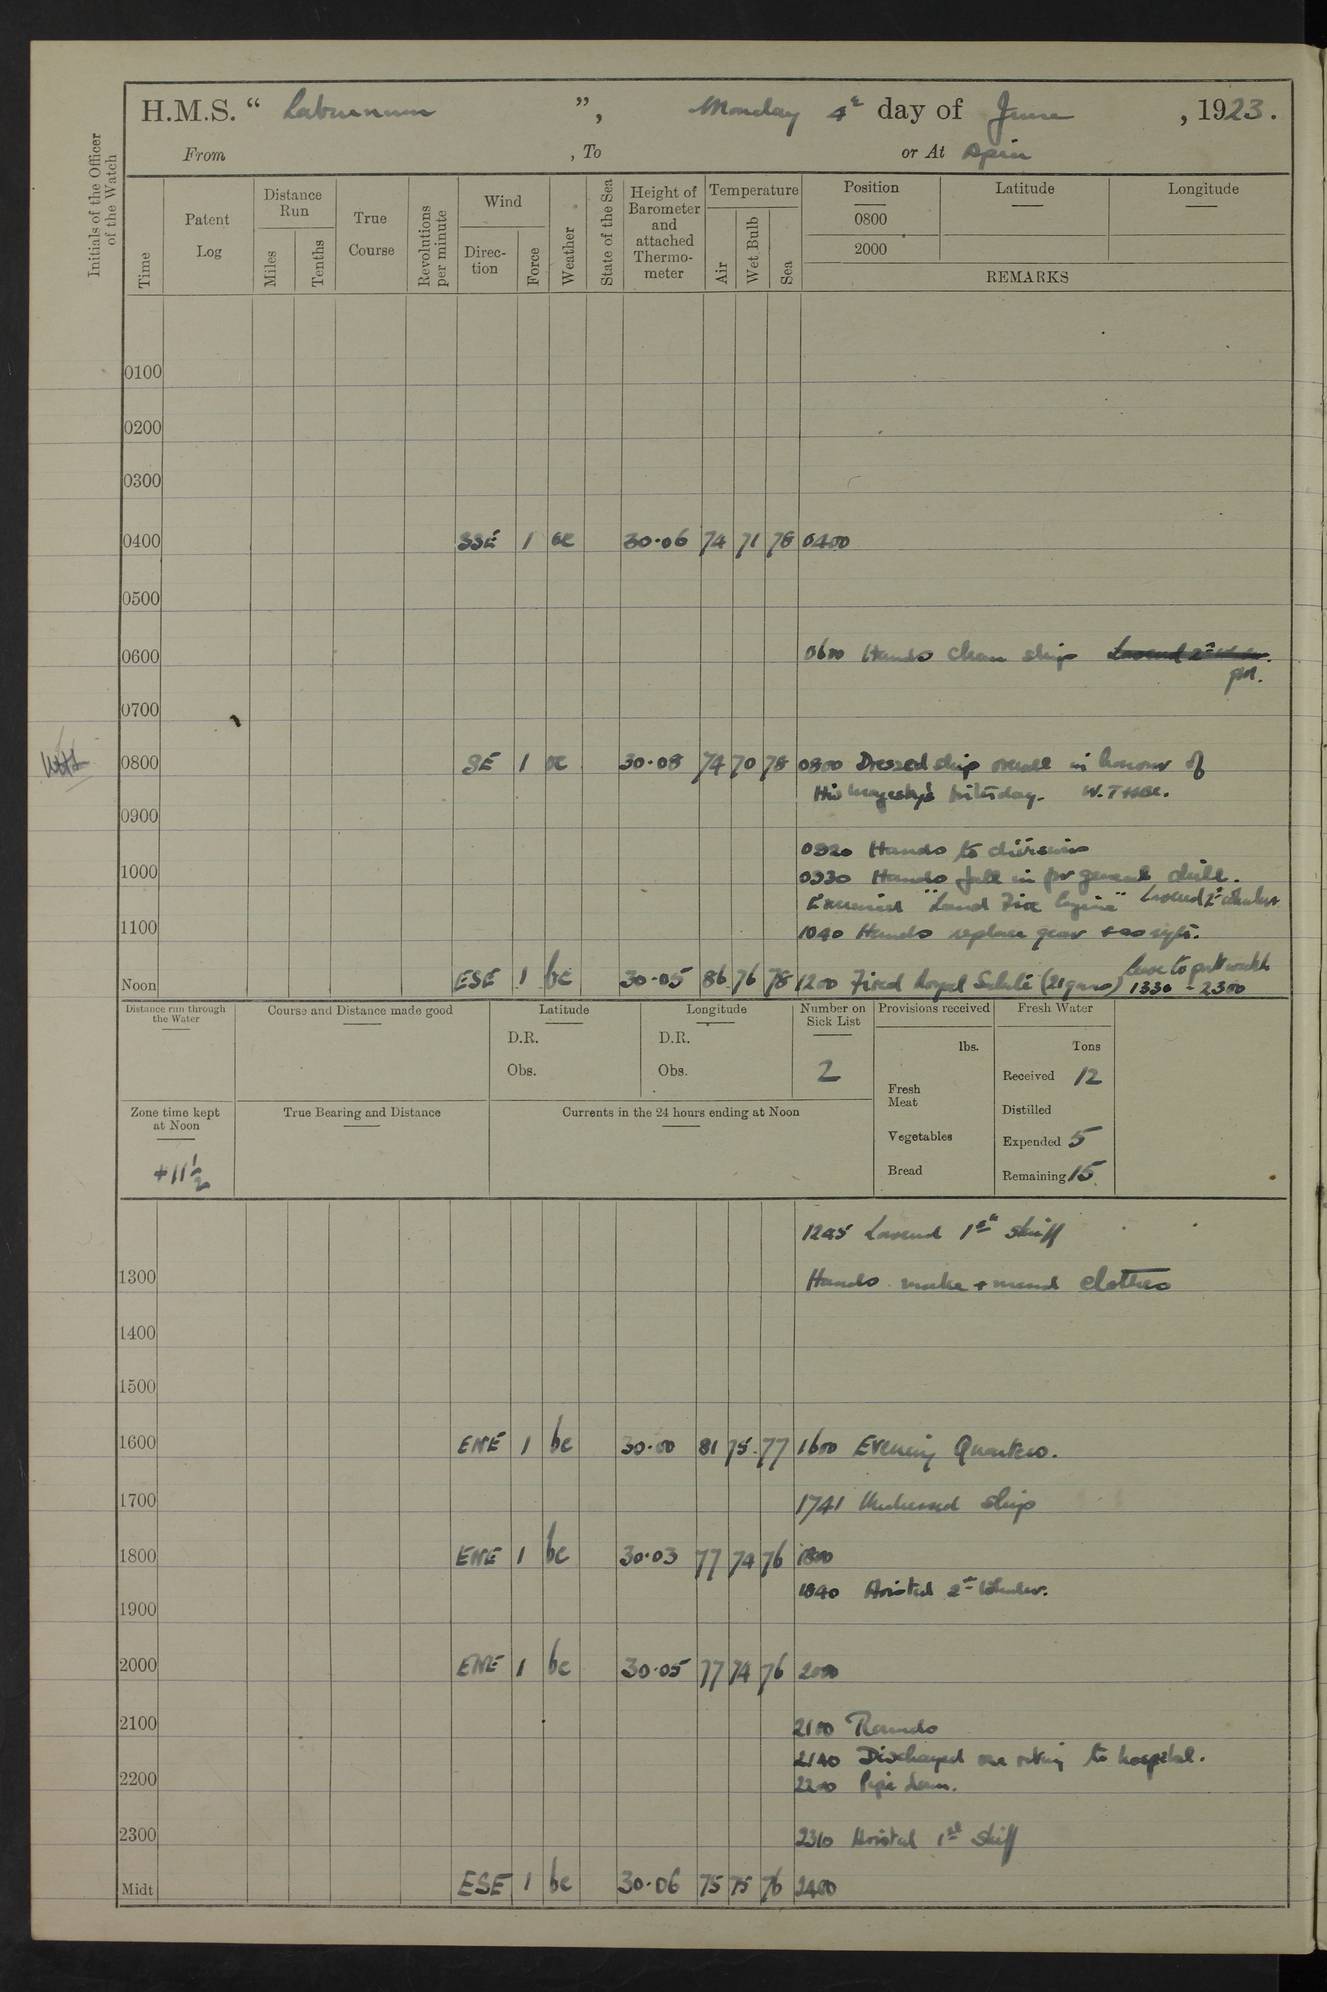 H.M.S. “ Laburnum ”, Monday 4th day of June , 1923.
From , To or At Apia
Initials of the Officer of the Watch
Time
Patent Log
Distance Run
Miles
Tenths
True Course
Revolutions per minute
Wind
Direc-tion
Force
Weather
State of the Sea
Height of Barometer and attached Thermo-meter
Temperature
Air
Wet Bulb
Sea
Position Latitude Longitude
0800
2000
REMARKS
0100
0200
0300
0400 SSE 1 bc 30.06 74 71 78 0400
0500
0600 0600 Hands clean ship
0700
0800 SE 1 bc 30.08 74 70 78 0800 Dressed ship overall in honour of
His Majesty's birthday.
0900
0920 Hands to divisions
1000 0930 Hands fall in for general drill.
Exercised "Land Fire Engine" Lowered 2nd whaler
1100 1040 Hands replace gear
Leave to part watch
Noon ESE 1 bc 30.05 86 76 78 1200 Fired Royal Salute (21 guns) 1330 - 2300
Distance run through the Water
Course and Distance made good
Latitude
D.R.
Obs.
Longitude
D.R.
Obs.
Number on Sick List
2
Provisions received
lbs.
Fresh Meat
Vegetables
Bread
Fresh Water
Tons
Received 12
Distilled
Expended 5
Remaining 15
Zone time kept at Noon
+11½
True Bearing and Distance
Currents in the 24 hours ending at Noon
1245 Lowered 1st skiff
1300 Hands make + mend clothes
1400
1500
1600 ENE 1 bc 30.00 81 75 77 1600 Evening Quarters.
1700 1741 Undressed ship
1800 ENE 1 bc 30.03 77 74 76 1800
1840 Hoisted 2nd Whaler.
1900
2000 ENE 1 bc 30.05 77 74 76 2000
2100 2100 Rounds
2140 Discharged one rating to hospital.
2200 2200 Pipe down.
2300 2310 Hoisted 1st skiff
Midt ESE 1 bc 30.06 75 75 76 2400